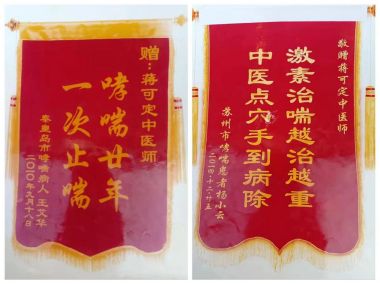 赠：蒋可定中医师
哮喘廿年
一次止喘
秦皇岛市哮喘病人 王文华
二〇一〇年九月十八日
敬赠蒋可定中医师
激素治喘越治越重
中医点穴手到病除
苏州市哮喘患者杨小云
二〇一四·十二·廿五